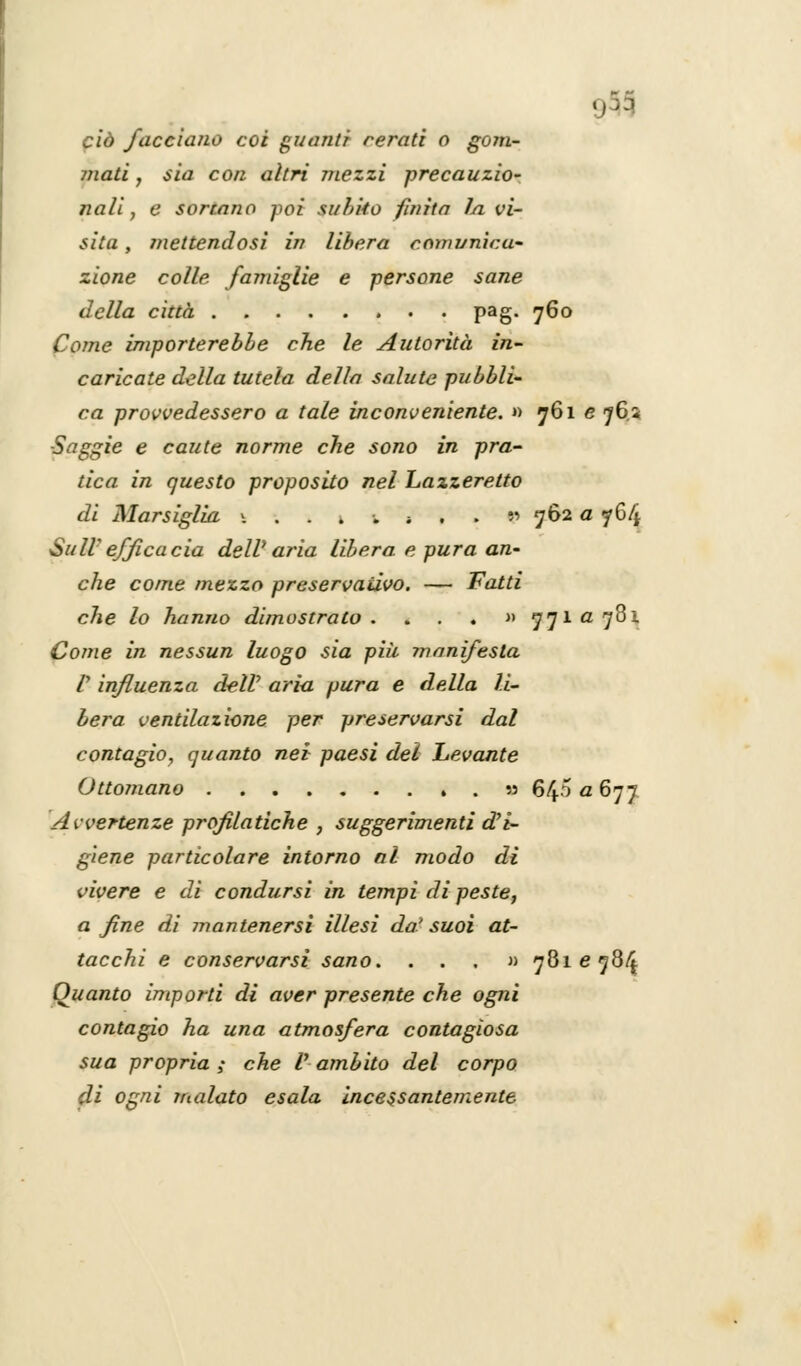 955
ciò facciano coi guanti cerati o gom-
mati, sia con altri mezzi precauzio-
nali, e sortano poi subito finita la vi-
sita, mettendosi in libera comunica-
zione colle famiglie e persone sane
della città . . . . . . . . pag. 760
Come importerebbe che le Autorità in-
caricate della tutela della salute pubbli-
ca provvedessero a tale inconveniente. » 761 e 762
Saggie e caute norme che sono in pra-
tica in questo proposito nel Lazzeretto
di Marsiglia . . . . . . . . » 762 a 764
Sull' efficacia dell' aria libera e pura an-
che come mezzo preservativo. — Fatti
che lo hanno dimostrato . . . . » 771 a 781
Come in nessun luogo sia più manifesta
l' influenza dell' aria pura e della li-
bera ventilazione per preservarsi dal
contagio, quanto nei paesi del Levante
Ottomano . . . . . . . . . » 645 a 677
Avvertenze profilatiche , suggerimenti d'i-
giene particolare intorno al modo di
vivere e di condursi in tempi di peste,
a fine di mantenersi illesi da' suoi at-
tacchi e conservarsi sano. . . . » 781 e 784
Quanto importi di aver presente che ogni
contagio ha una atmosfera contagiosa
sua propria ; che l' ambito del corpo
di ogni malato esala incessantemente